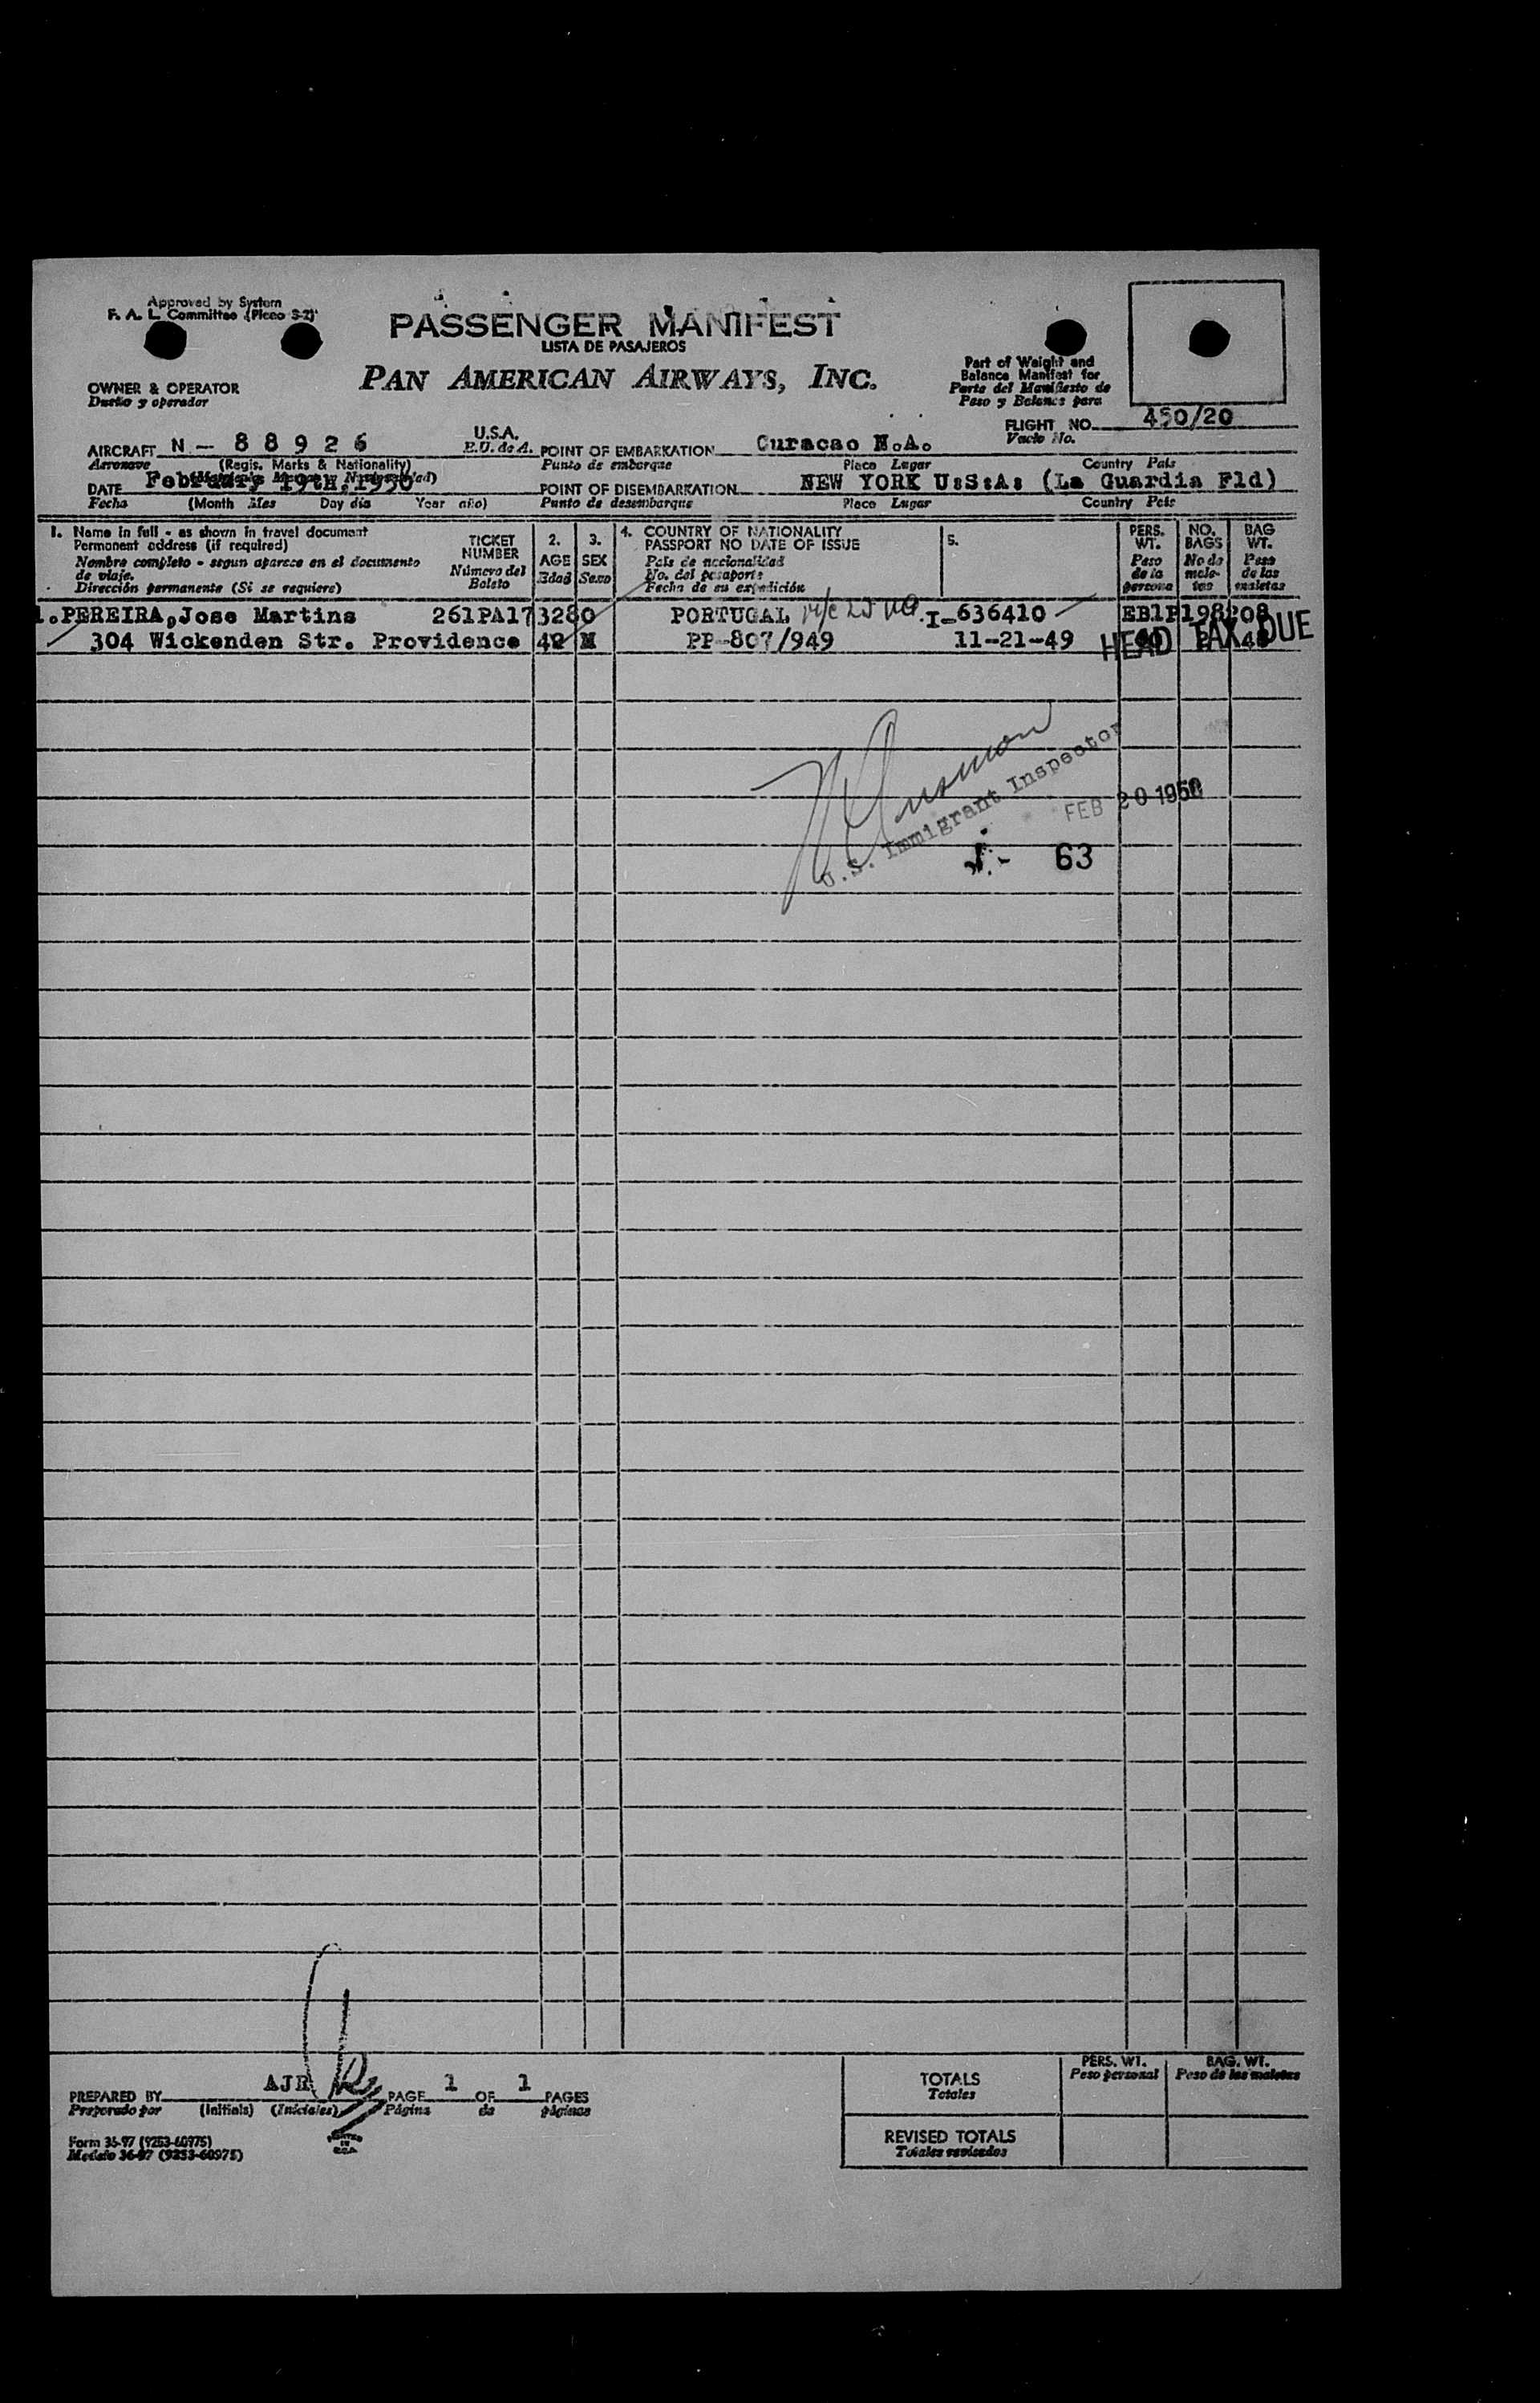 Approved by System
F. A. L. Committee (Picao S-2)
PASSENGER MANIFEST
LISTA DE PASAJEROS
PAN AMERICAN AIRWAYS, INC.
OWNER & OPERATOR
Dueño y operador
Part of Weight and
Balance Manifest for
Parte del Manifiesto de
Peso y Balance para
FLIGHT NO. 450/20
Vuelo No.
AIRCRAFT N - 88926 U.S.A. E.U. de A.
Aeronave (Regis. Marks & Nationality)
POINT OF EMBARKATION Curacao N.A.
Punto de embarque Place Lugar Country Pais
DATE February 19th, 1950
Fecha (Month Mes Day dia Year año)
POINT OF DISEMBARKATION NEW YORK U:S:A: (La Guardia Fld)
Punto de desembarque Place Lugar Country Pais
1. Name in full - as shown in travel document
Permanent address (if required)
Nombre completo - segun aparece en el documento
de viaje.
Dirección permanente (Si se requiere)
TICKET
NUMBER
Número del
Boleto
2.
AGE
Edad
3.
SEX
Sexo
4. COUNTRY OF NATIONALITY
PASSPORT NO DATE OF ISSUE
País de nacionalidad
No. del pasaporte
Fecha de su expedición
5.
PERS.
WT.
Peso
de la
persona
NO.
BAGS
No de
male-
tas
BAG
WT.
Peso
de las
maletas
1. PEREIRA, Jose Martins 261PA173280 PORTUGAL I-636410 EB1P198208
304 Wickenden Str. Providence M PP-807/949 11-21-49
HEAD TAX DUE
U.S. Immigrant Inspector
FEB 20 1950
63
PREPARED BY AJR PAGE 1 OF 1 PAGES
Preparado por (Initials) (Iniciales) Página de páginas
Form 36-97 (9253-60975)
Modelo 36-97 (9253-60975)
PRINTED
IN
U.S.A.
PERS. WT.
Peso personal
BAG. WT.
Peso de las maletas
TOTALS
Totales
REVISED TOTALS
Totales revisados